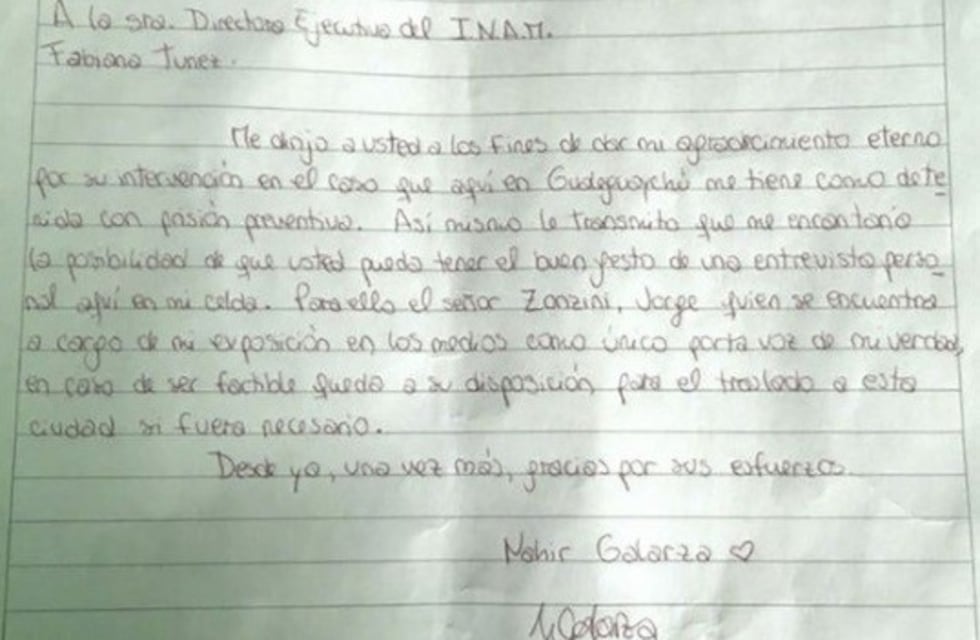 A la sra. Directora Ejecutiva del I.N.A.M.
Fabiana Tunez.
Me dirijo a usted a los fines de dar mi agradecimiento eterno
por su intervención en el caso que aquí en Gualeguaychú me tiene como dete
nida con prisión preventiva. Así mismo le transmito que me encantaría
la posibilidad de que usted pueda tener el buen gesto de una entrevista perso
nal aquí en mi celda. Para ello el señor Zonzini, Jorge quien se encuentra
a cargo de mi exposición en los medios como único porta voz de mi verdad,
en caso de ser factible queda a su disposición para el traslado a esta
ciudad si fuera necesario.
Desde ya, una vez más, gracias por sus esfuerzos.
Nahir Galarza ♡
NGalarza